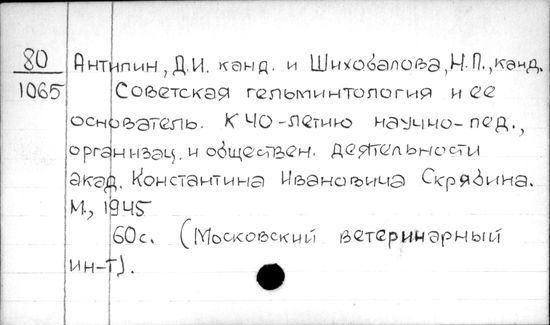 80
1065
Антипин, Д.И. канд. и Шиховалова, Н.П., канд.
Советская гельминтология и ее
основатель. К 40-летию научно-пед.,
организац. и обществен. деятельности
акад. Константина Ивановича Скрябина.
М., 1945
60с. (Московский ветеринарный
ин-т).